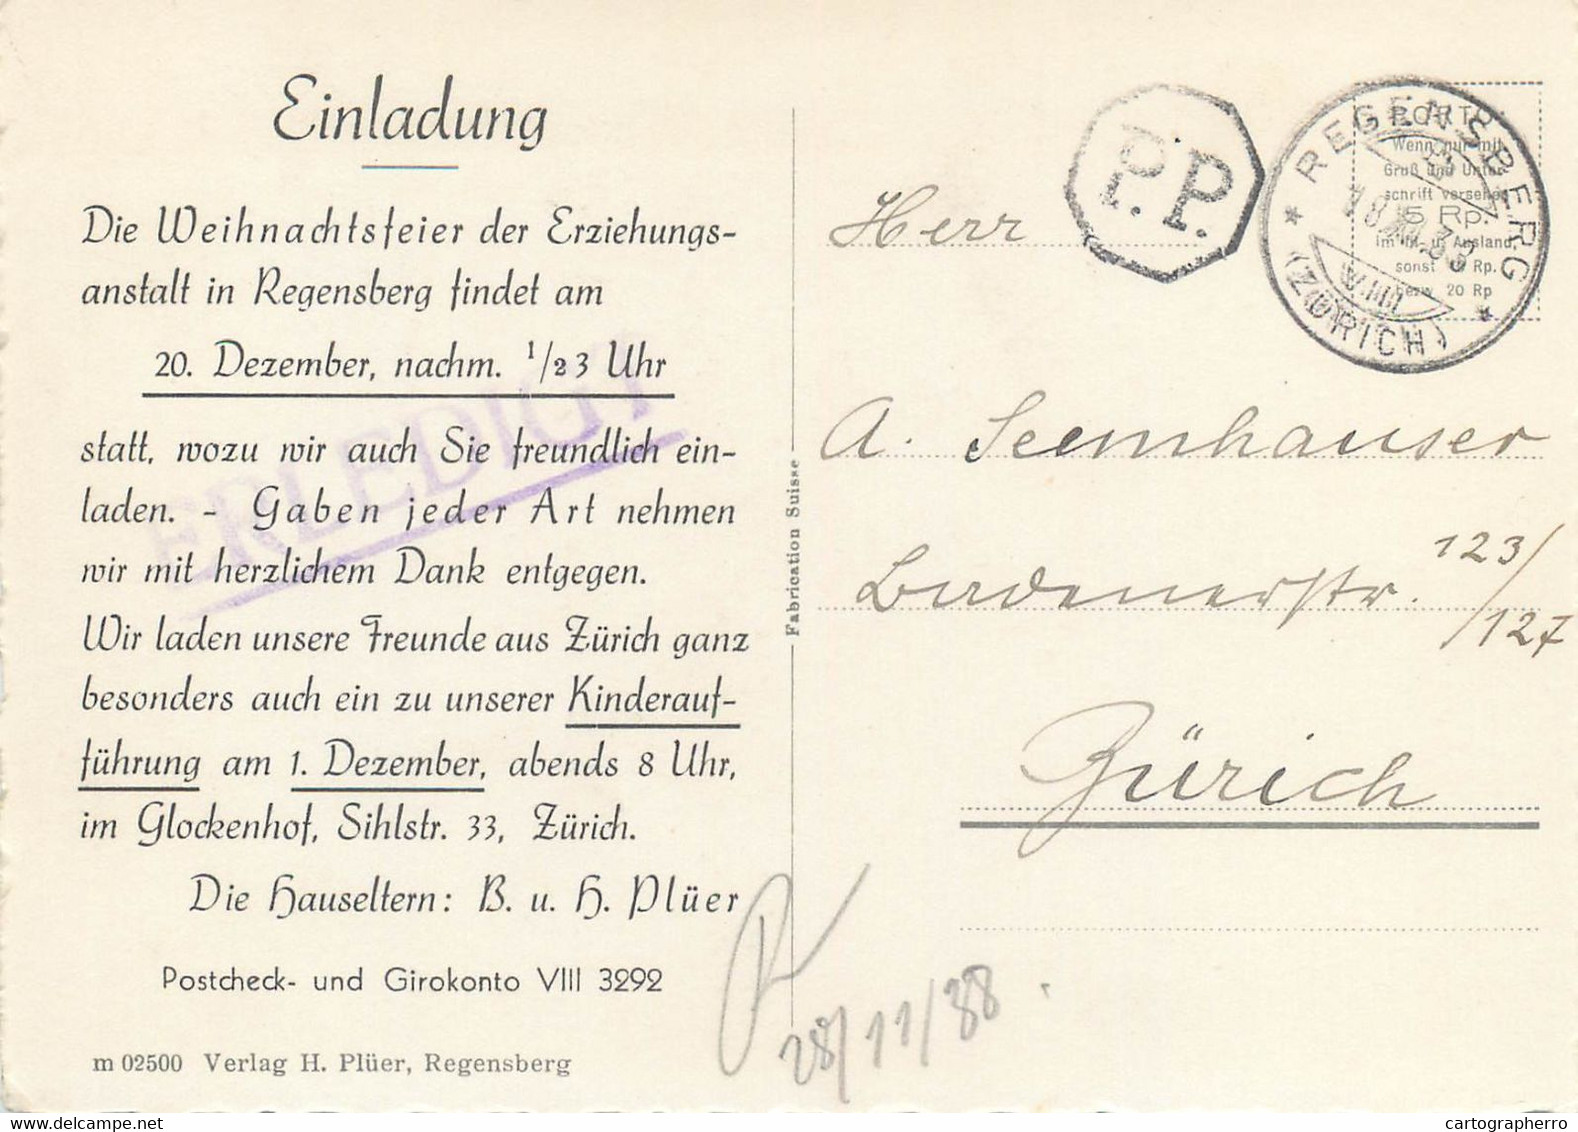 Einladung
Die Weihnachtsfeier der Erziehungs-
anstalt in Regensberg findet am
20. Dezember, nachm. 1/2 3 Uhr
statt, wozu wir auch Sie freundlich ein-
laden. - Gaben jeder Art nehmen
wir mit herzlichem Dank entgegen.
Wir laden unsere Freunde aus Zürich ganz
besonders auch ein zu unserer Kinderauf-
führung am 1. Dezember, abends 8 Uhr,
im Glockenhof, Sihlstr. 33, Zürich.
Die Hauseltern: B. u. H. Plüer
Postcheck- und Girokonto VIII 3292
m 02500 Verlag H. Plüer, Regensberg
ERLEDIGT
Fabrication Suisse
P.P.
REGENSBERG
(ZÜRICH)
PORTO
Wenn nur mit
Gruß und Unter-
schrift versehen
5 Rp.
im In- u. Ausland
sonst Rp.
bezw. 20 Rp
Herr
A. Seemhauser
Badenerstr. 123/
/127
Zürich
28/11/38
cartographerro